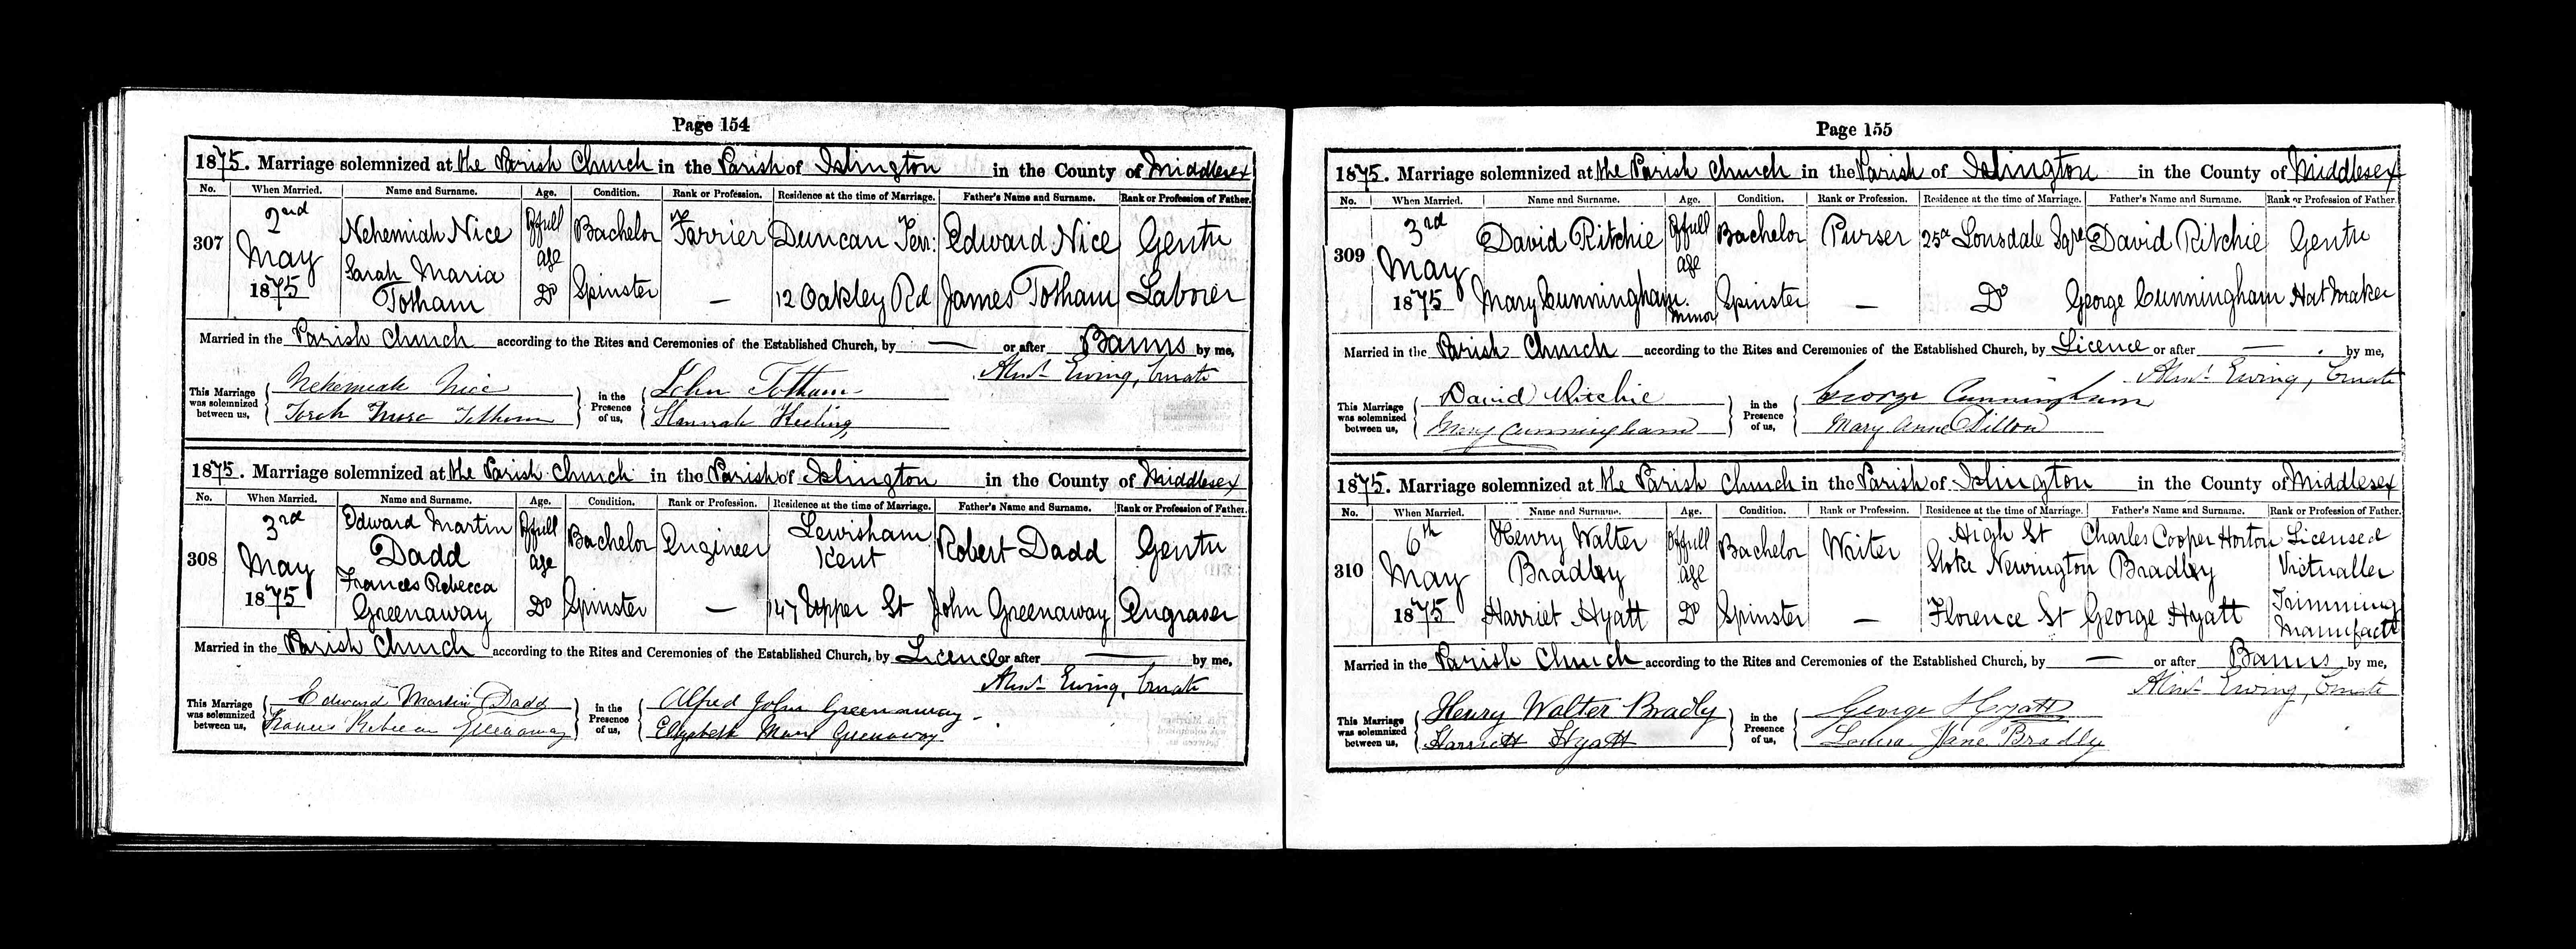 Page 154
1875. Marriage solemnized at the Parish Church in the Parish of Islington in the County of Middlesex
No. When Married. Name and Surname. Age. Condition. Rank or Profession. Residence at the time of Marriage. Father's Name and Surname. Rank or Profession of Father.
307 2nd May 1875 Nehemiah Nice Of full age Bachelor Farrier Duncan Terr: Edward Nice Gentn
Sarah Maria Totham Do Spinster — 12 Oakley Rd James Totham Laborer
Married in the Parish Church according to the Rites and Ceremonies of the Established Church, by — or after Banns by me,
Ewing, Curate
This Marriage was solemnized between us, Nehemiah Nice in the Presence of us, John Totham
Totham Hannah
1875. Marriage solemnized at the Parish Church in the Parish of Islington in the County of Middlesex
No. When Married. Name and Surname. Age. Condition. Rank or Profession. Residence at the time of Marriage. Father's Name and Surname. Rank or Profession of Father.
308 3rd May 1875 Edward Martin Dadd Of full age Bachelor Engineer Lewisham Kent Robert Dadd Gentn
Frances Rebecca Greenaway Do Spinster — 147 Upper St John Greenaway Engraver
Married in the Parish Church according to the Rites and Ceremonies of the Established Church, by Licence or after — by me,
Ewing, Curate
This Marriage was solemnized between us, Edward Martin Dadd in the Presence of us, Alfred John Greenaway
Frances Rebecca Greenaway Elizabeth Greenaway
Page 155
1875. Marriage solemnized at the Parish Church in the Parish of Islington in the County of Middlesex
No. When Married. Name and Surname. Age. Condition. Rank or Profession. Residence at the time of Marriage. Father's Name and Surname. Rank or Profession of Father.
309 3rd May 1875 David Ritchie Of full age Bachelor Purser 25a Lonsdale Sqre David Ritchie Gentn
Mary Cunningham. Minor Spinster — Do George Cunningham Hat Maker
Married in the Parish Church according to the Rites and Ceremonies of the Established Church, by Licence or after — by me,
Ewing, Curate
This Marriage was solemnized between us, David Ritchie in the Presence of us, George Cunningham
Mary Cunningham Mary Anne Dillon
1875. Marriage solemnized at the Parish Church in the Parish of Islington in the County of Middlesex
No. When Married. Name and Surname. Age. Condition. Rank or Profession. Residence at the time of Marriage. Father's Name and Surname. Rank or Profession of Father.
310 6th May 1875 Henry Walter Bradley Of full age Bachelor Waiter High St Stoke Newington Charles Cooper Horton Bradley Licensed Victualler
Harriet Hyatt Do Spinster — Florence St George Hyatt Trimming Manufactr
Married in the Parish Church according to the Rites and Ceremonies of the Established Church, by — or after Banns by me,
Ewing, Curate
This Marriage was solemnized between us, Henry Walter Bradly in the Presence of us, George Hyatt
Harriett Hyatt Jane Bradly